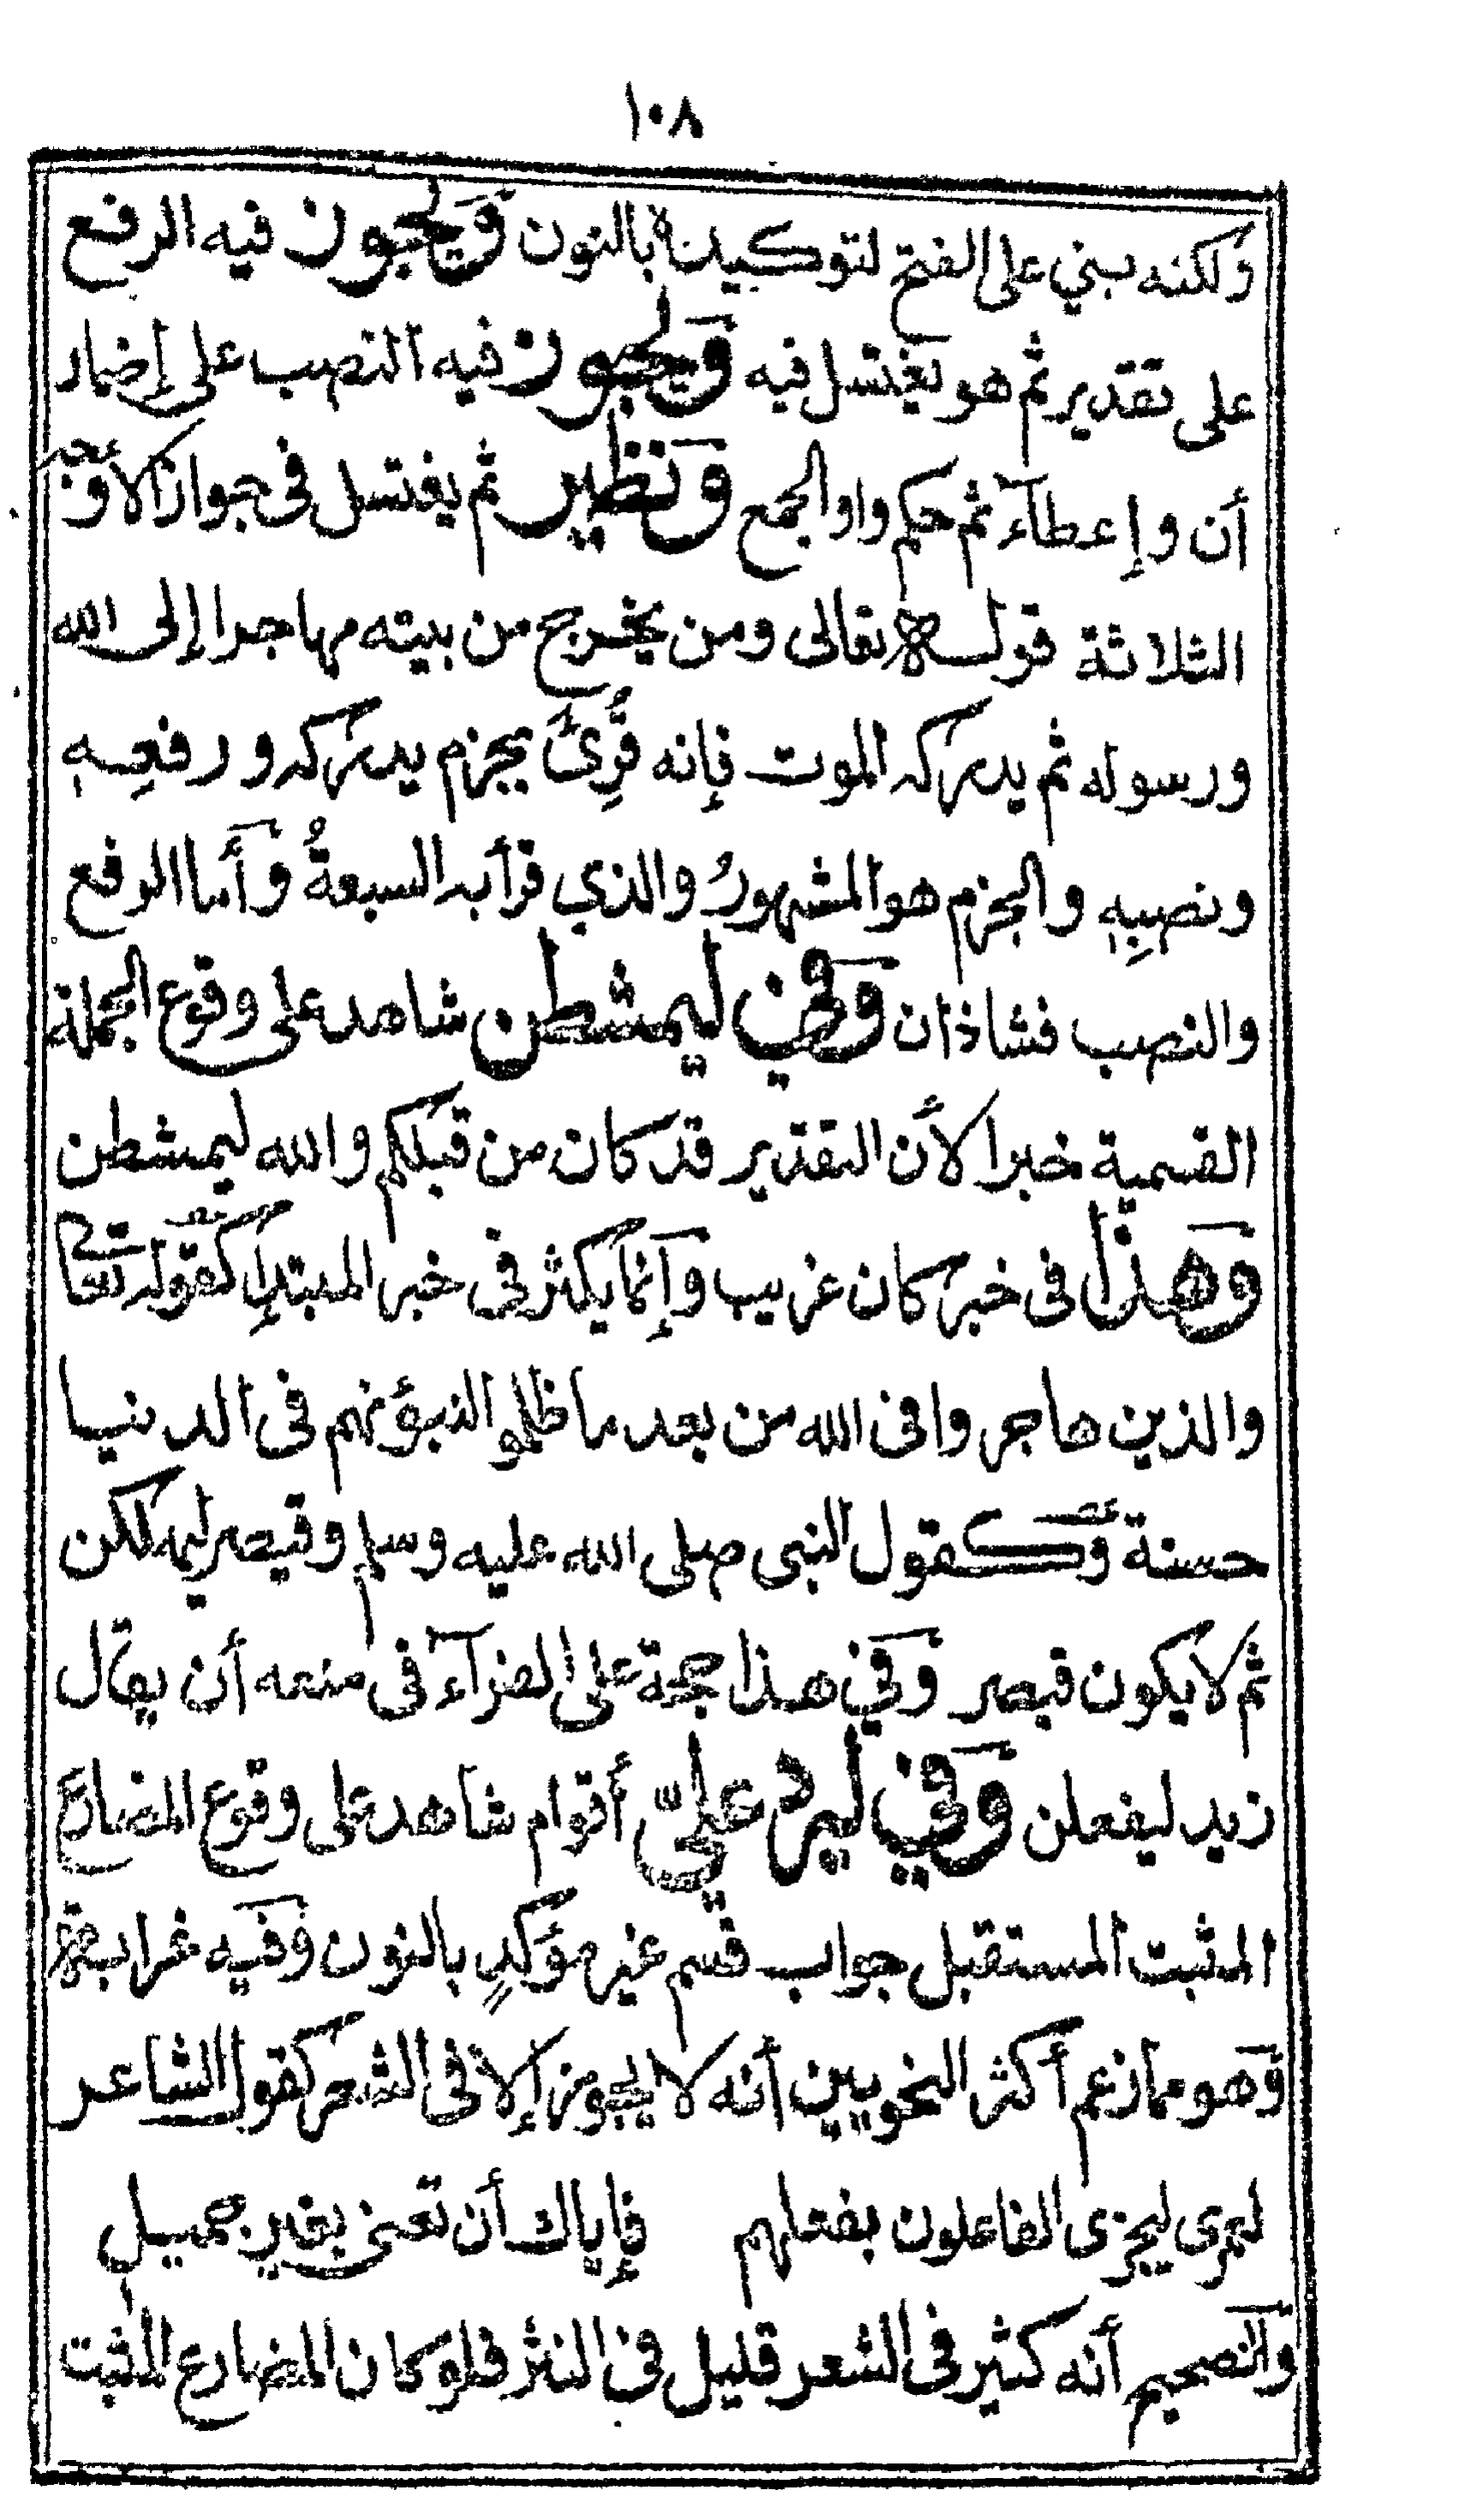 ١٠٨
ولكنه بني على الفتح لتوكيده بالنون وَيجوز فيه الرفع
على تقدير ثم هو يغتسل فيه وَيجوز فيه النصب على إضمار
أن وإعطآء ثم حكم واو الجمع وَنظير ثم يغتسل في جواز الأوجه
الثلاثة قوله تعالى ومن يخرج من بيته مهاجرا إلى الله
ورسوله ثم يدركه الموت فإنه قُرِئَ بجزم يدركه ورفعِهِ
ونصبِهِ والجزم هو المشهورُ والذي قرأ به السبعةُ وَأما الرفع
والنصب فشاذان وَفي ليمشطن شاهد على وقوع الجملة
القسمية خبرا لأن التقدير قد كان من قبلكم والله ليمشطن
وَهذا في خبر كان غريب وَإنما يكثر في خبر المبتدإ كقوله تعالى
والذين هاجروا في الله من بعد ما ظلموا لنبوئنهم في الدنيا
حسنة وَكقول النبي صلى الله عليه وسلم وقيصر ليهلكن
ثم لا يكون قيصر وَفي هذا حجة على الفرآء في منعه أن يقال
زيد ليفعلن وَفي ليرد عليّ أقوام شاهد على وقوع المضارع
المثبت المستقبل جواب قسم غير مؤكدٍ بالنون وَفيه غرابة
وَهو مما زعم أكثر النحويين أنه لا يجوز إلا في الشعر كقول الشاعر
لعمري ليجزى الفاعلون بفعلهم فإياك أن تعنى بغير جميل
وَالصحيح أنه كثير في الشعر قليل في النثر فلو كان المضارع المثبت